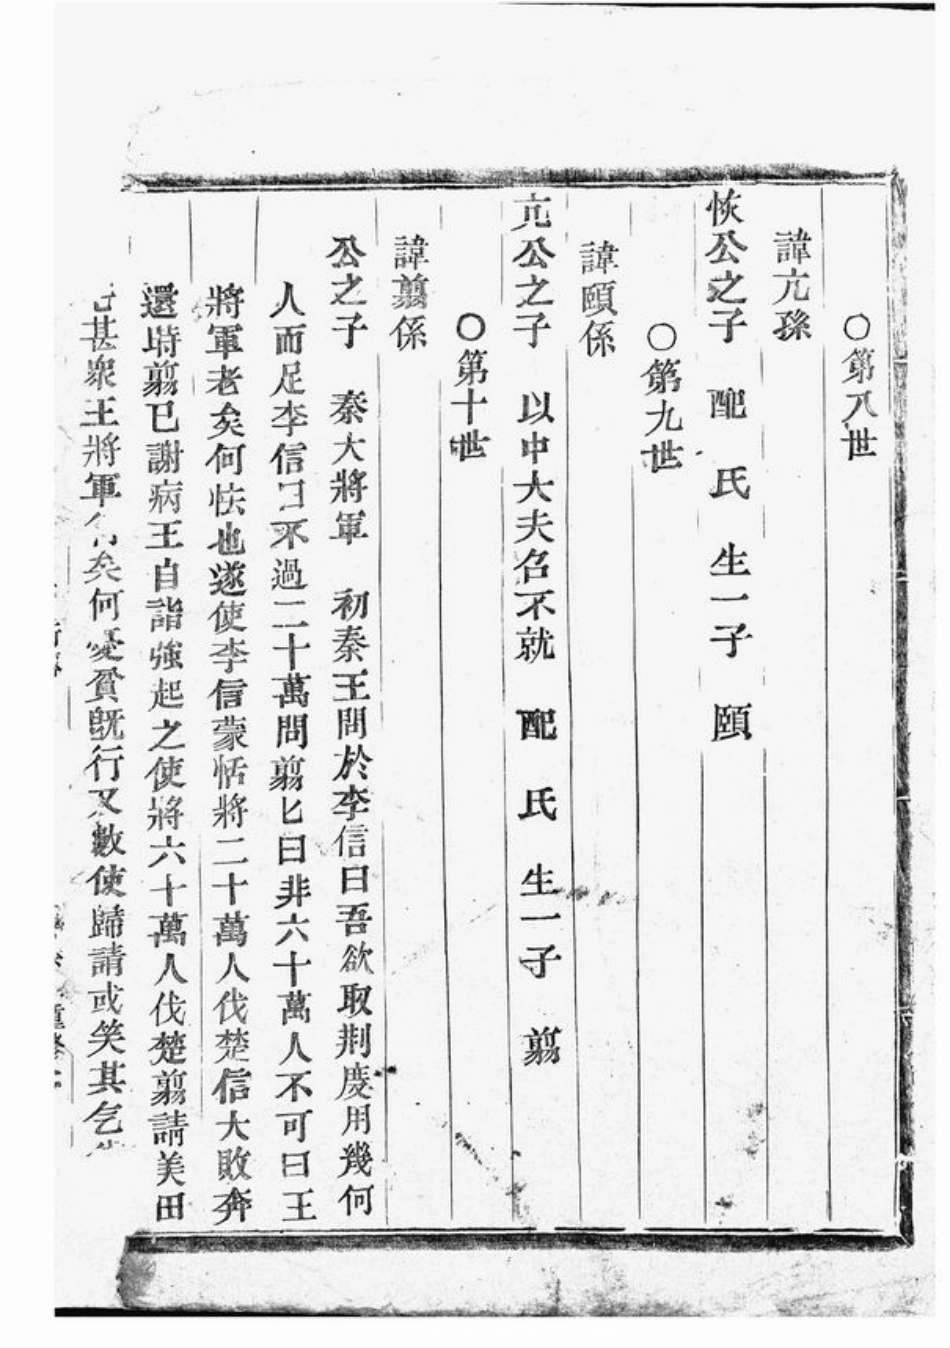 ○第八世
諱亢孫
恢公之子 配 氏 生一子 頤
○第九世
諱頤係
亢公之子 以中大夫召不就 配 氏 生一子 翦
○第十世
諱翦係
公之子 秦大將軍 初秦王問於李信曰吾欲取荆度用幾何
人而足李信曰不過二十萬問翦匕曰非六十萬人不可曰王
將軍老矣何怯也遂使李信蒙恬將二十萬人伐楚信大敗奔
還時翦已謝病王自詣强起之使將六十萬人伐楚翦請美田
甚衆王將軍行矣何憂貧旣行又數使歸請或笑其乞